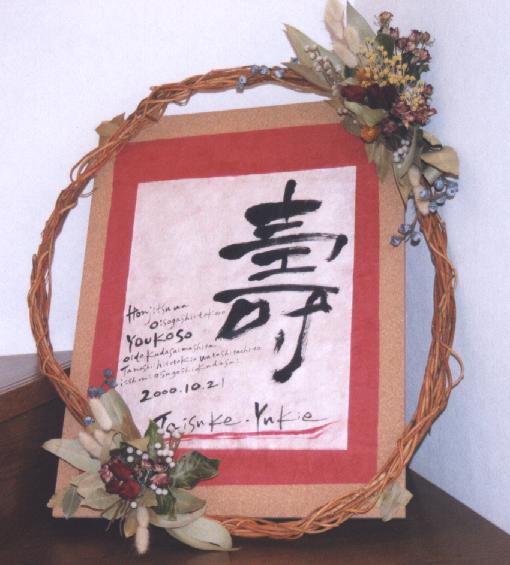 壽
Honjitsuwa
Oisogashiitokoro
YOUKOSO
Oidekudasaimashita
Tanoshiihitotokio watashitachito
isshoni Osugoshikudasai
2000.10.21
Taisuke・Yukie